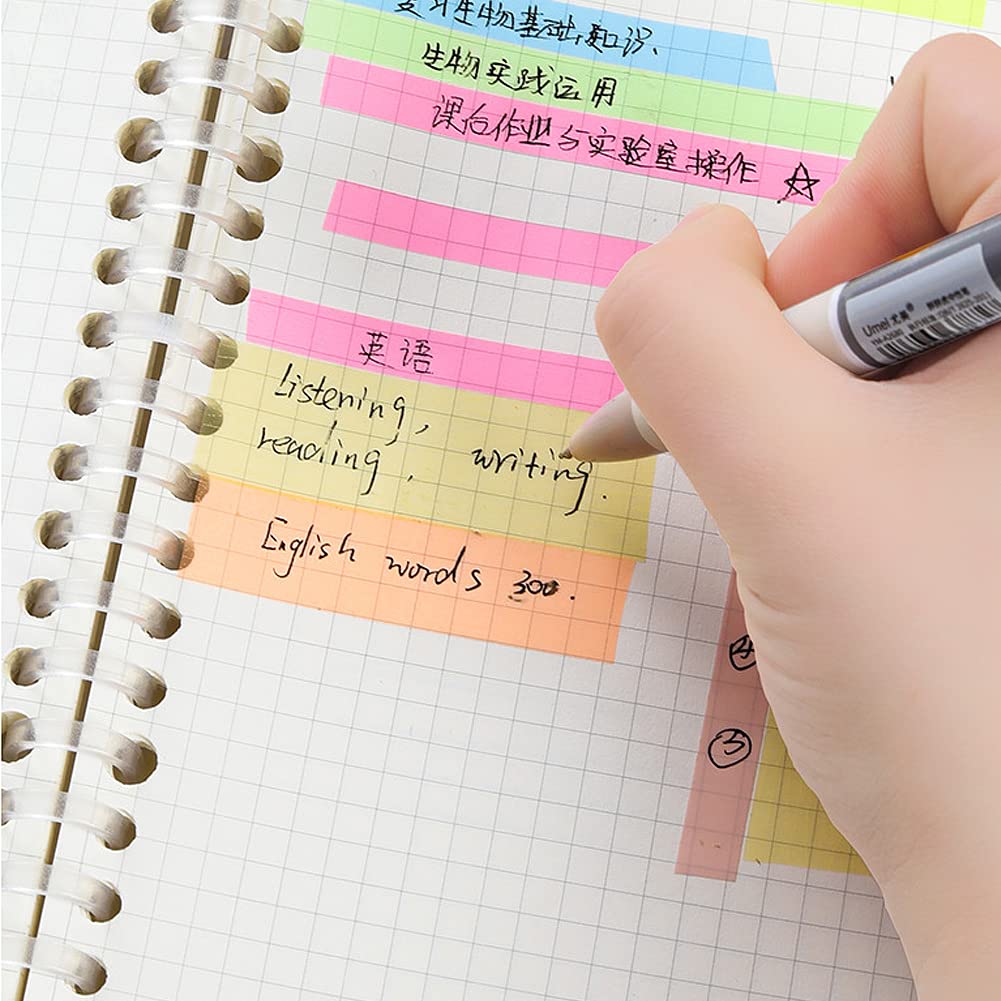 复习生物基础知识、
生物实践运用
课后作业与实验室操作 ☆
英语
Listening,
reading, writing.
English words 300.
④
③
Umei